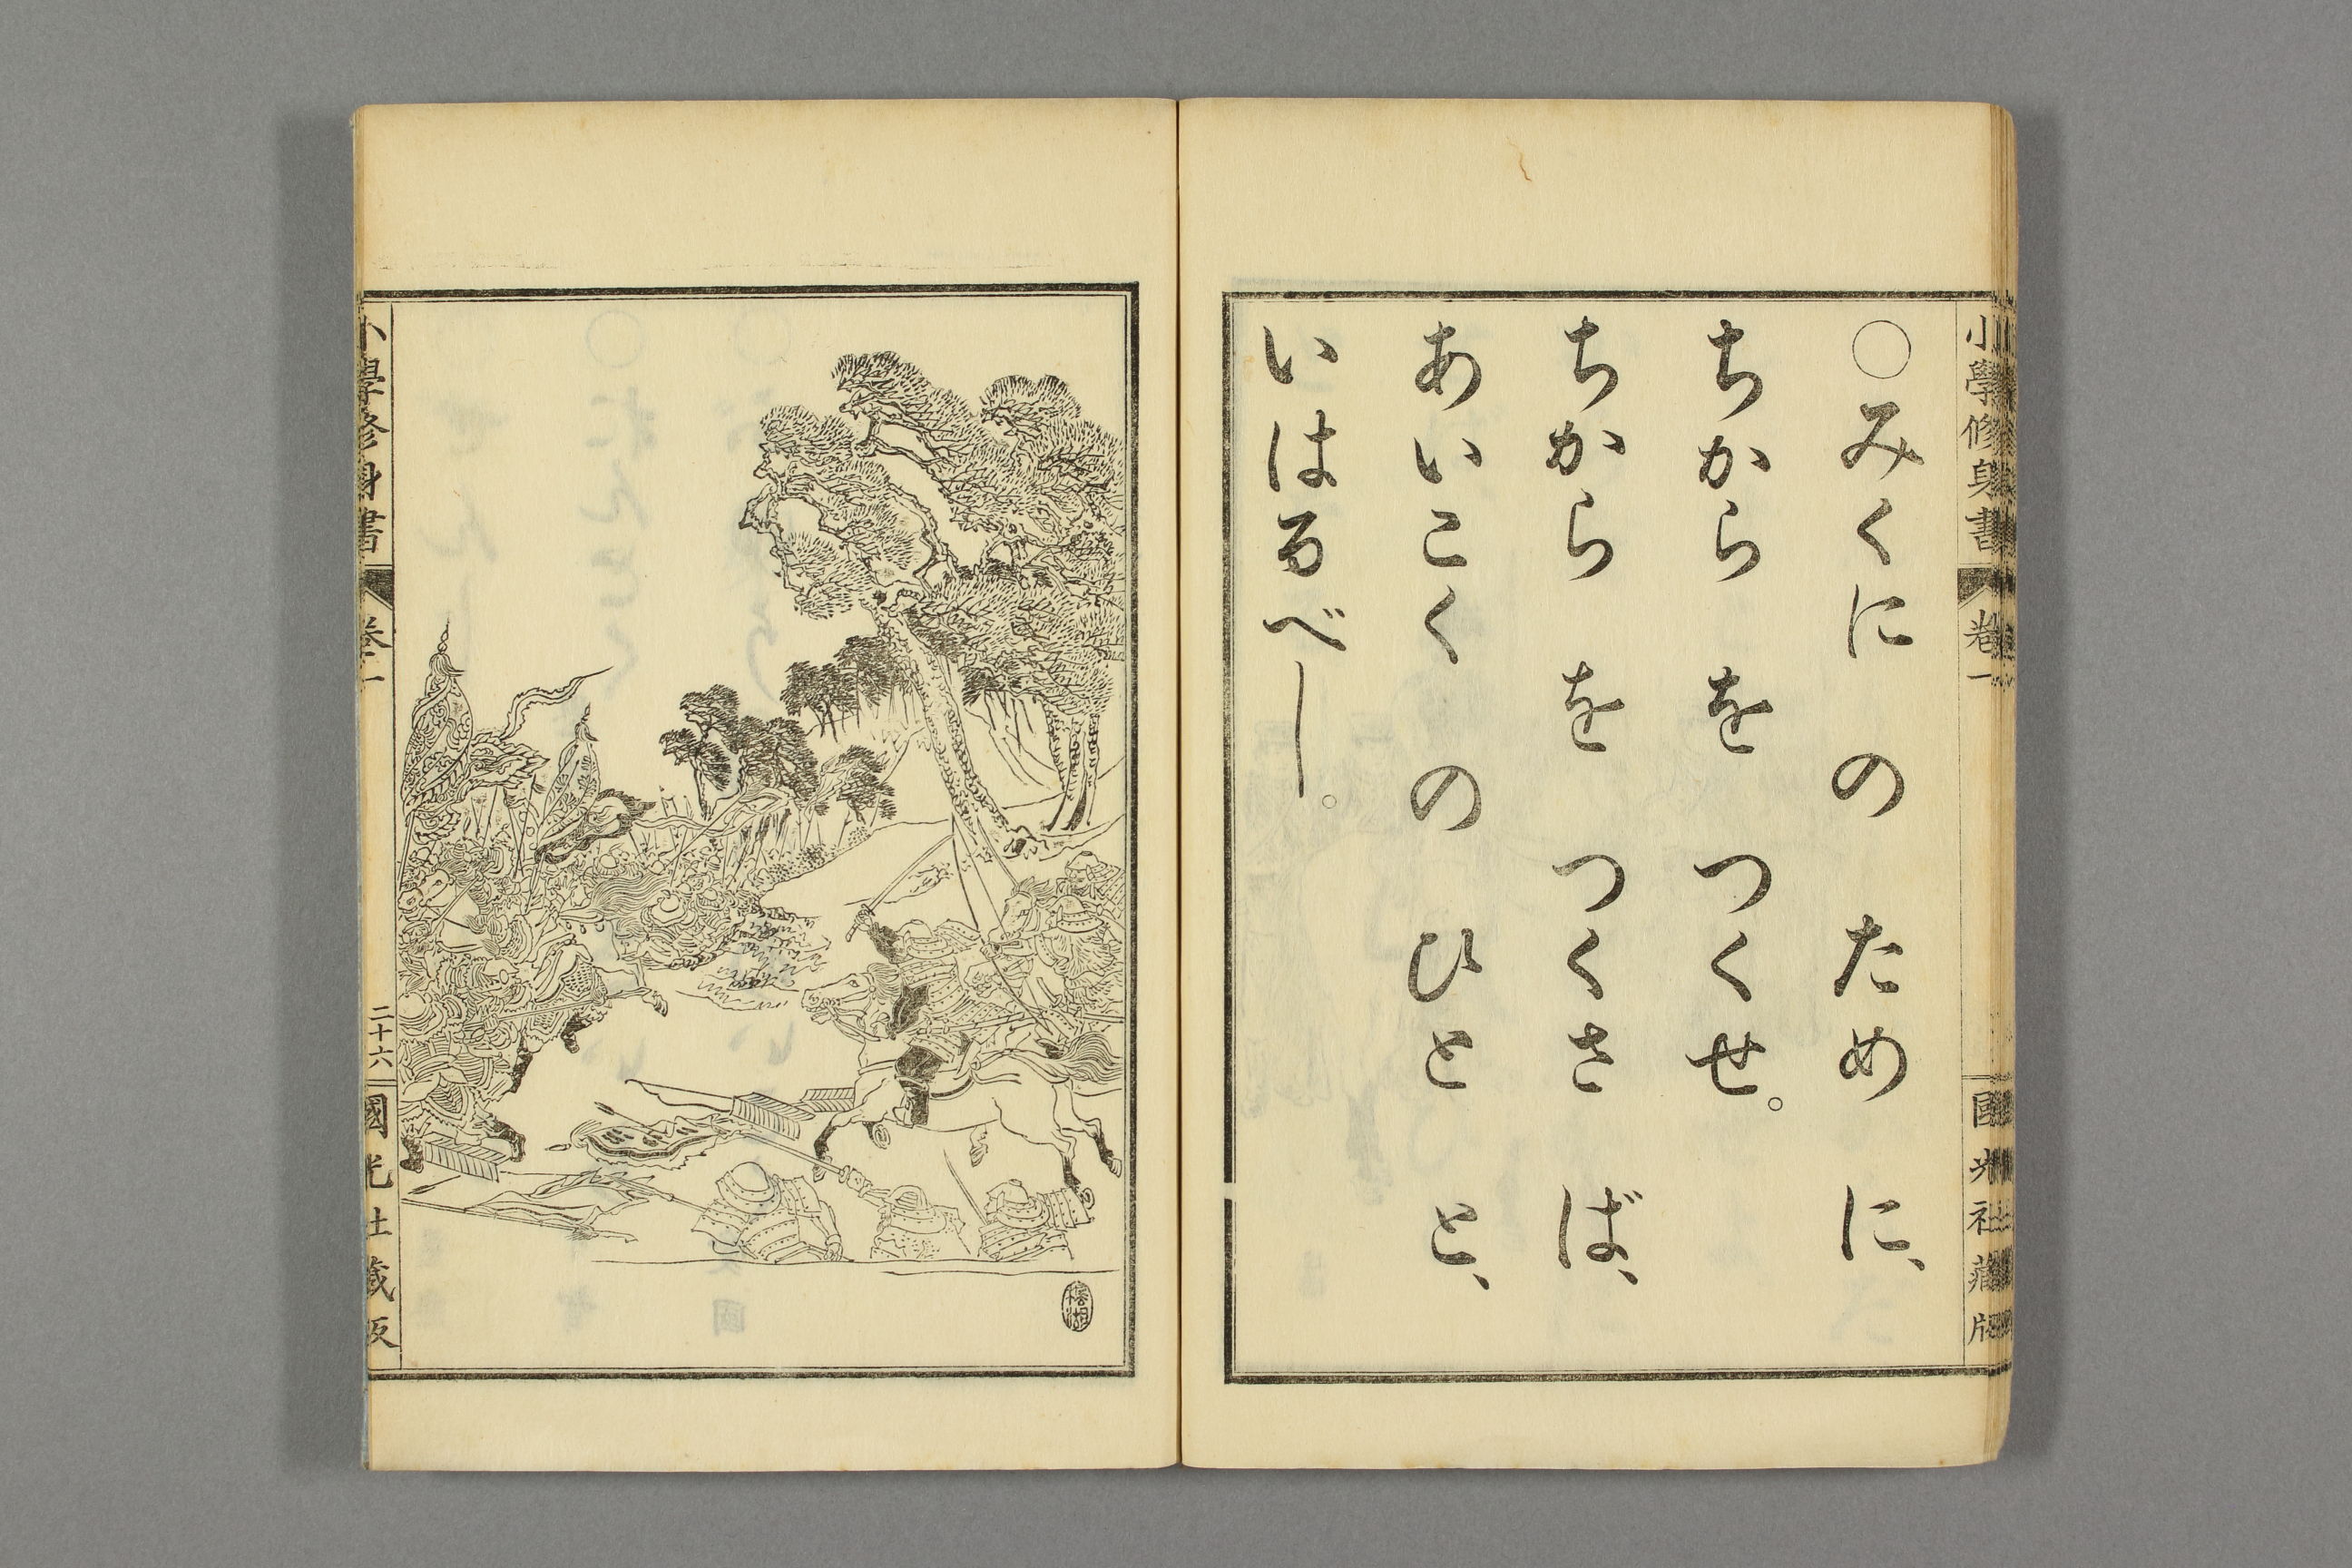 小學修身書 卷一 國光社藏版
○みくに の ため に、
ちから を つくせ。
ちから を つくさ ば、
あいこく の ひと と、
いはるべし。
小學修身書 卷一 二十六 國光社藏版